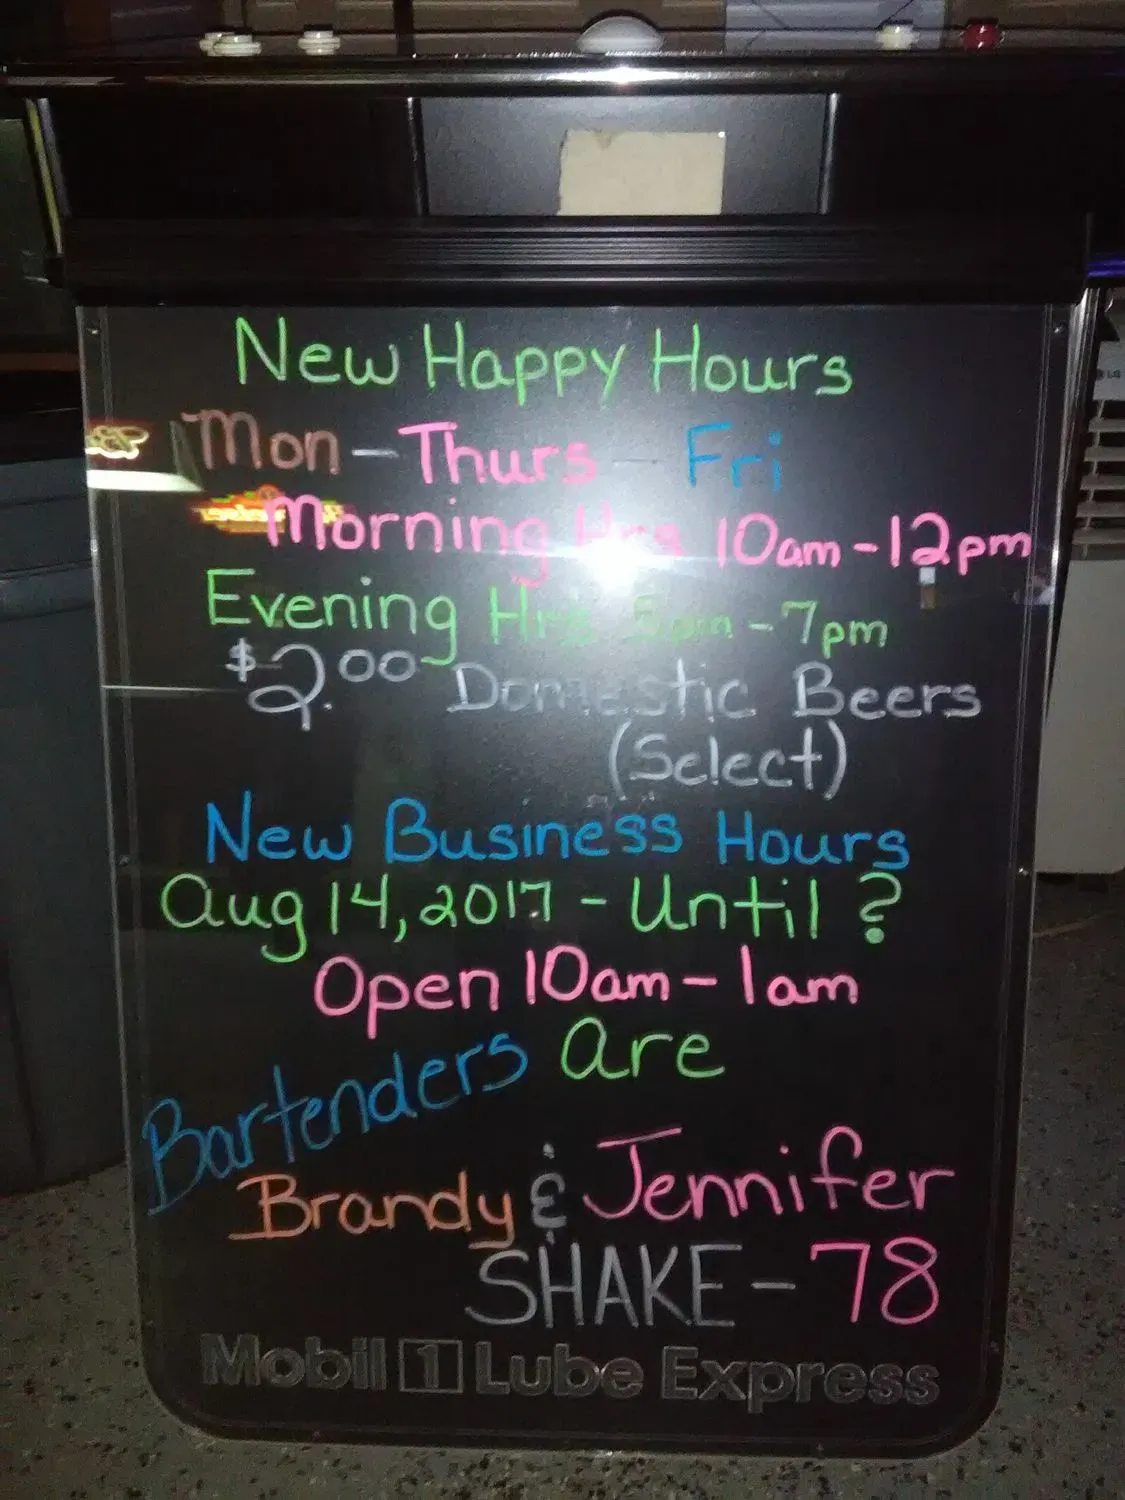 New Happy Hours
Mon - Thurs - Fri
Morning Hrs 10am - 12pm
Evening Hrs 5pm - 7pm
$2.00 Domestic Beers
(Select)
New Business Hours
Aug 14, 2017 - Until ?
Open 10am - 1am
Bartenders Are
Brandy & Jennifer
SHAKE - 78
Mobil 1 Lube Express